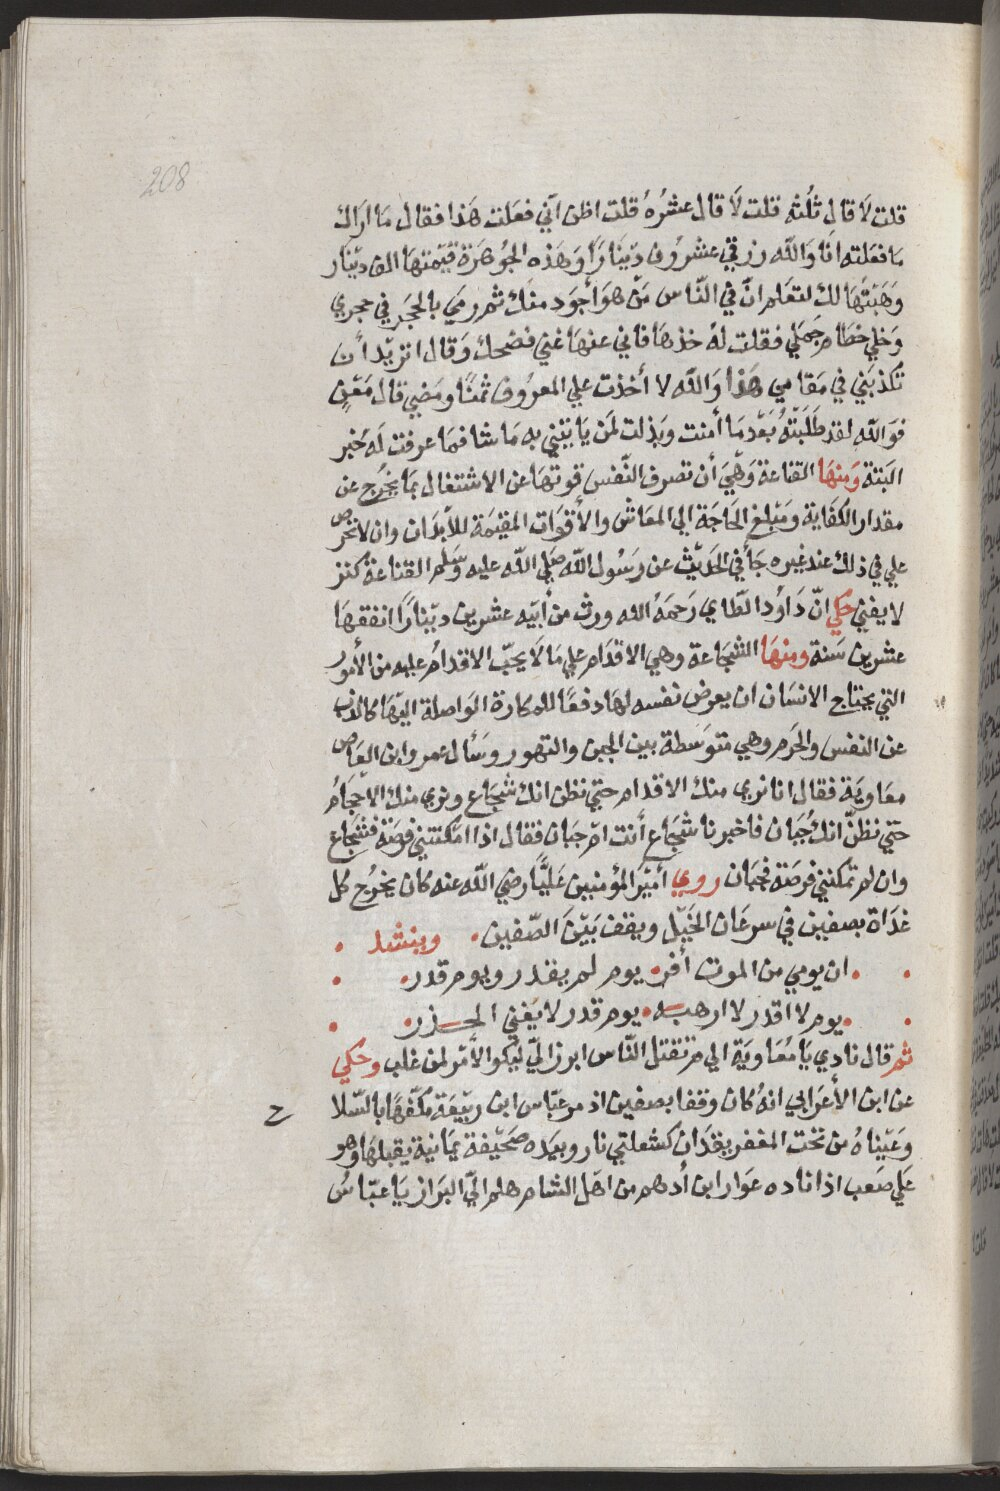 208
قلت لَا قال ثُلُثِه قلت لَا قال عشرُهُ قلت اظن اَنّي فعَلت هَذا فقال مَا ارَاك
مَا فعَلته انَا وَاللّه رزقي عشرُون دينَارًا وَهَذه الجُوهَرَة قيمتهَا الف دينَار
وَهَبْتهَا لك لتعَلم انّ في النّاس مَن هوَ أجوَد منَك ثم رمَي بالحجَر في حجري
وَخلي خطَام جَمَلي فقلت لهُ خذهَا فاني عنهَا غني فضحك وَقال اتريّد أن
تكذبَني في مَقامي هَذا وَاللّه لا أخذت علي المعرُوف ثمنًا ومَضي قال مَعْنٍ
فوَاللّه لقد طَلَبَتْهُ بَعْد مَا أمنت وبَذلت لمَن يَاتيني به مَا شا فمَا عرفت لَه خَبر
البَتة وَمنهَا القناعة وَهيَ أن تصرف النّفس قوتهَا عن الاشتغال بمَا يخُرج عن
مقدار الكفَاية ومَبلغ الحَاجَة الي المعَاش والأقوَات المقيمَة للأبدَان وان لا تحُرص
علي في ذلك عند غيره جَأ في الحَديْث عن رَسُول اللّه صَلي اللّه عليه وسَلم القناعة كنز
لا يفني حكي انّ دَاوُد الطّاي رَحمَهُ الله ورث من أبيّه عشرين دينَارًا انفقهَا
عشرين سَنة ومنهَا الشجَاعة وهي الاقدَام علي مَا لَا يحبّ الاقدَامُ عليه من الأمُور
التي يحتاج الانسَان ان يعرض نفسه لهَا دفعًا للمكارة الوَاصلة اليهَا كالذب
عن النفس والحَرم وهي متوَسطة بين الجبن والتهور وسَأل عمر وابن العَاص
معَاويَة فقال انا نري منك الاقدام حتي نظن انك شجَاع ونري منك الاحجَامُ
حتي نظنّ انك جُبَان فاخبرنا شجَاع أنت ام جبَان فقال اذا امكنتني فرصَة فشجَاع
وان لم تمكنني فرصَة فجبَان روي أميْرَ المؤمنين عَليًّا رضي اللّه عنه كان يخرُج كل
غدَاة بصفين في سرعَان الخيْل ويقف بَيْنَ الصّفين وينشد
ان يومي من الموت أفر يوم لم يقدر ويوم قدر
يوم لا اقدر لا ارهبه يوم قدر لا يُغني الحــذر
ثم قال نادي يَا مُعَاويَة الي مَ تقتل النّاس ابرز اليّ ليكو الأمْر لمن غلب وحُكي
عن ابن الأعرَابي انهُ كان وقفا بصفين اذ مر عبّاس ابن ربيْعَة مكَفّهًا بالسّلا ح
وعَيْناهُ من تحْت المغفر يقدَان كشعلتي نار وبيَده صحَيفة يمَانية يقبلهَا وهو
عَلي صَعب اذ اناده عوَار ابن أدهم من اهْل الشام هلم اليّ البرَاز يَا عبّاسُ